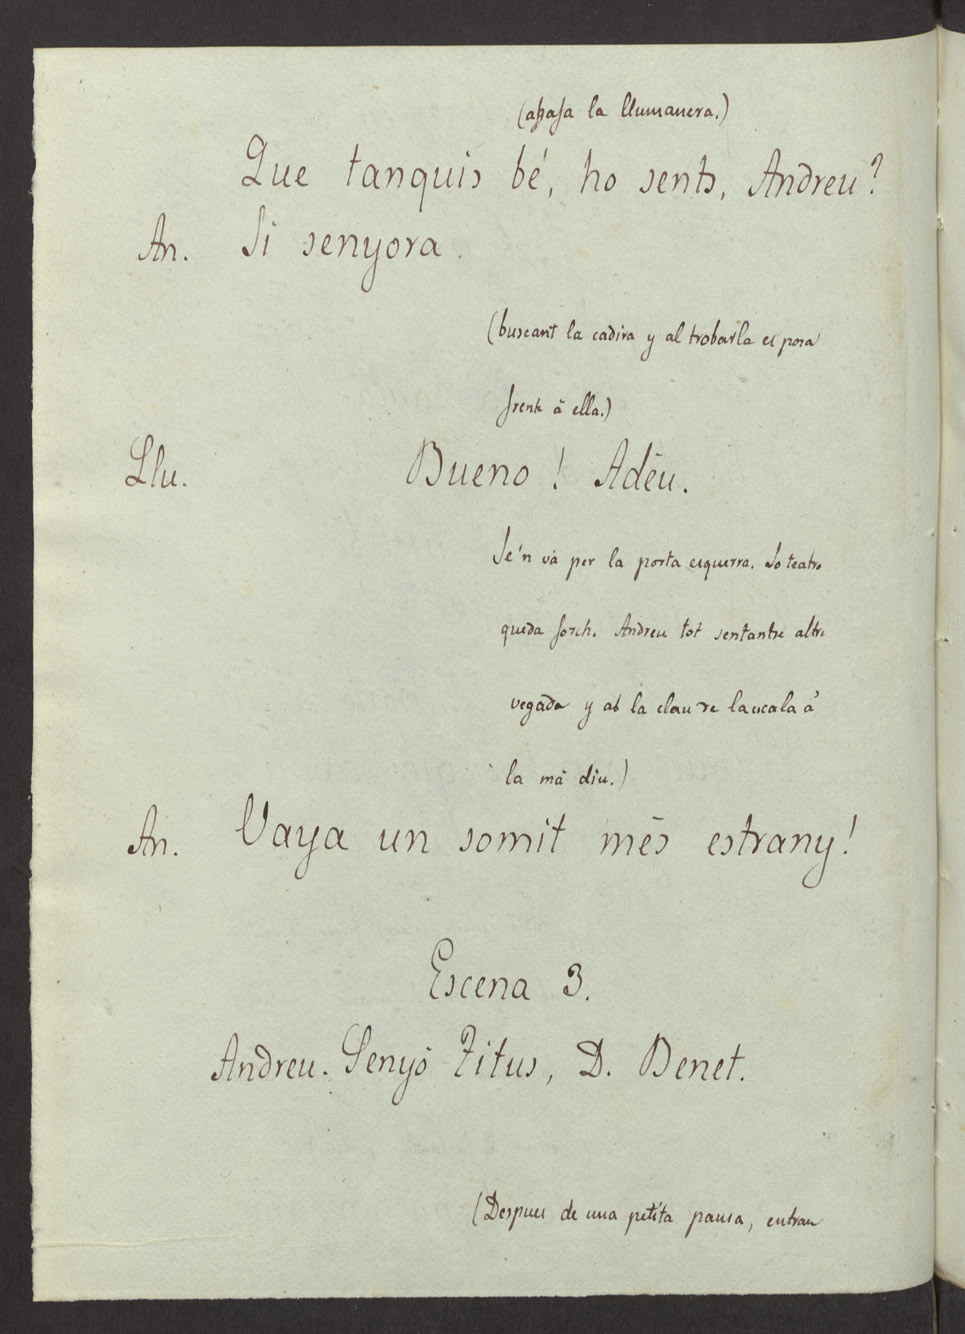 (apaga la llumanera.)
Que tanquis bé, ho sents, Andreu?
An. Si senyora.
(buscant la cadira y al trobarla es posa
frente á ella.)
Llu. Bueno! Adéu.
Se'n vá per la porta esquerra. Lo teatro
queda forch. Andreu tot sentantse altre
vegada y ab la clau de la escala á
la má diu.)
An. Vaya un somit més estrany!
Escena 3.
Andreu. Senyó Titus, D. Benet.
(Despues de una petita pausa, entran